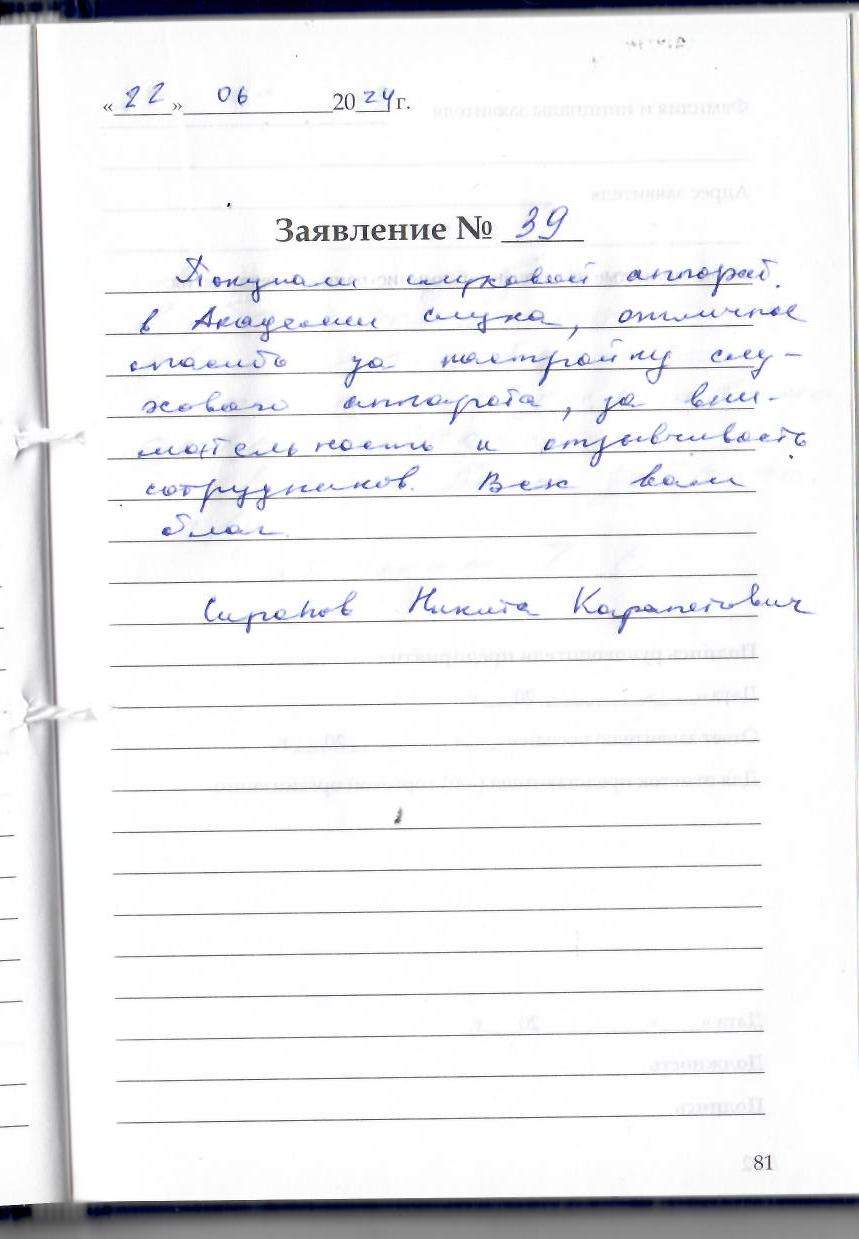 «22» 06 2024 г.
Заявление № 39
Покупали слуховой аппарат
в Академии слуха, отличное
спасибо за настройку слу-
хового аппарата, за вни-
мательность и отзывчивость
сотрудников. Всех вам
благ.
Никита Карапетович
81